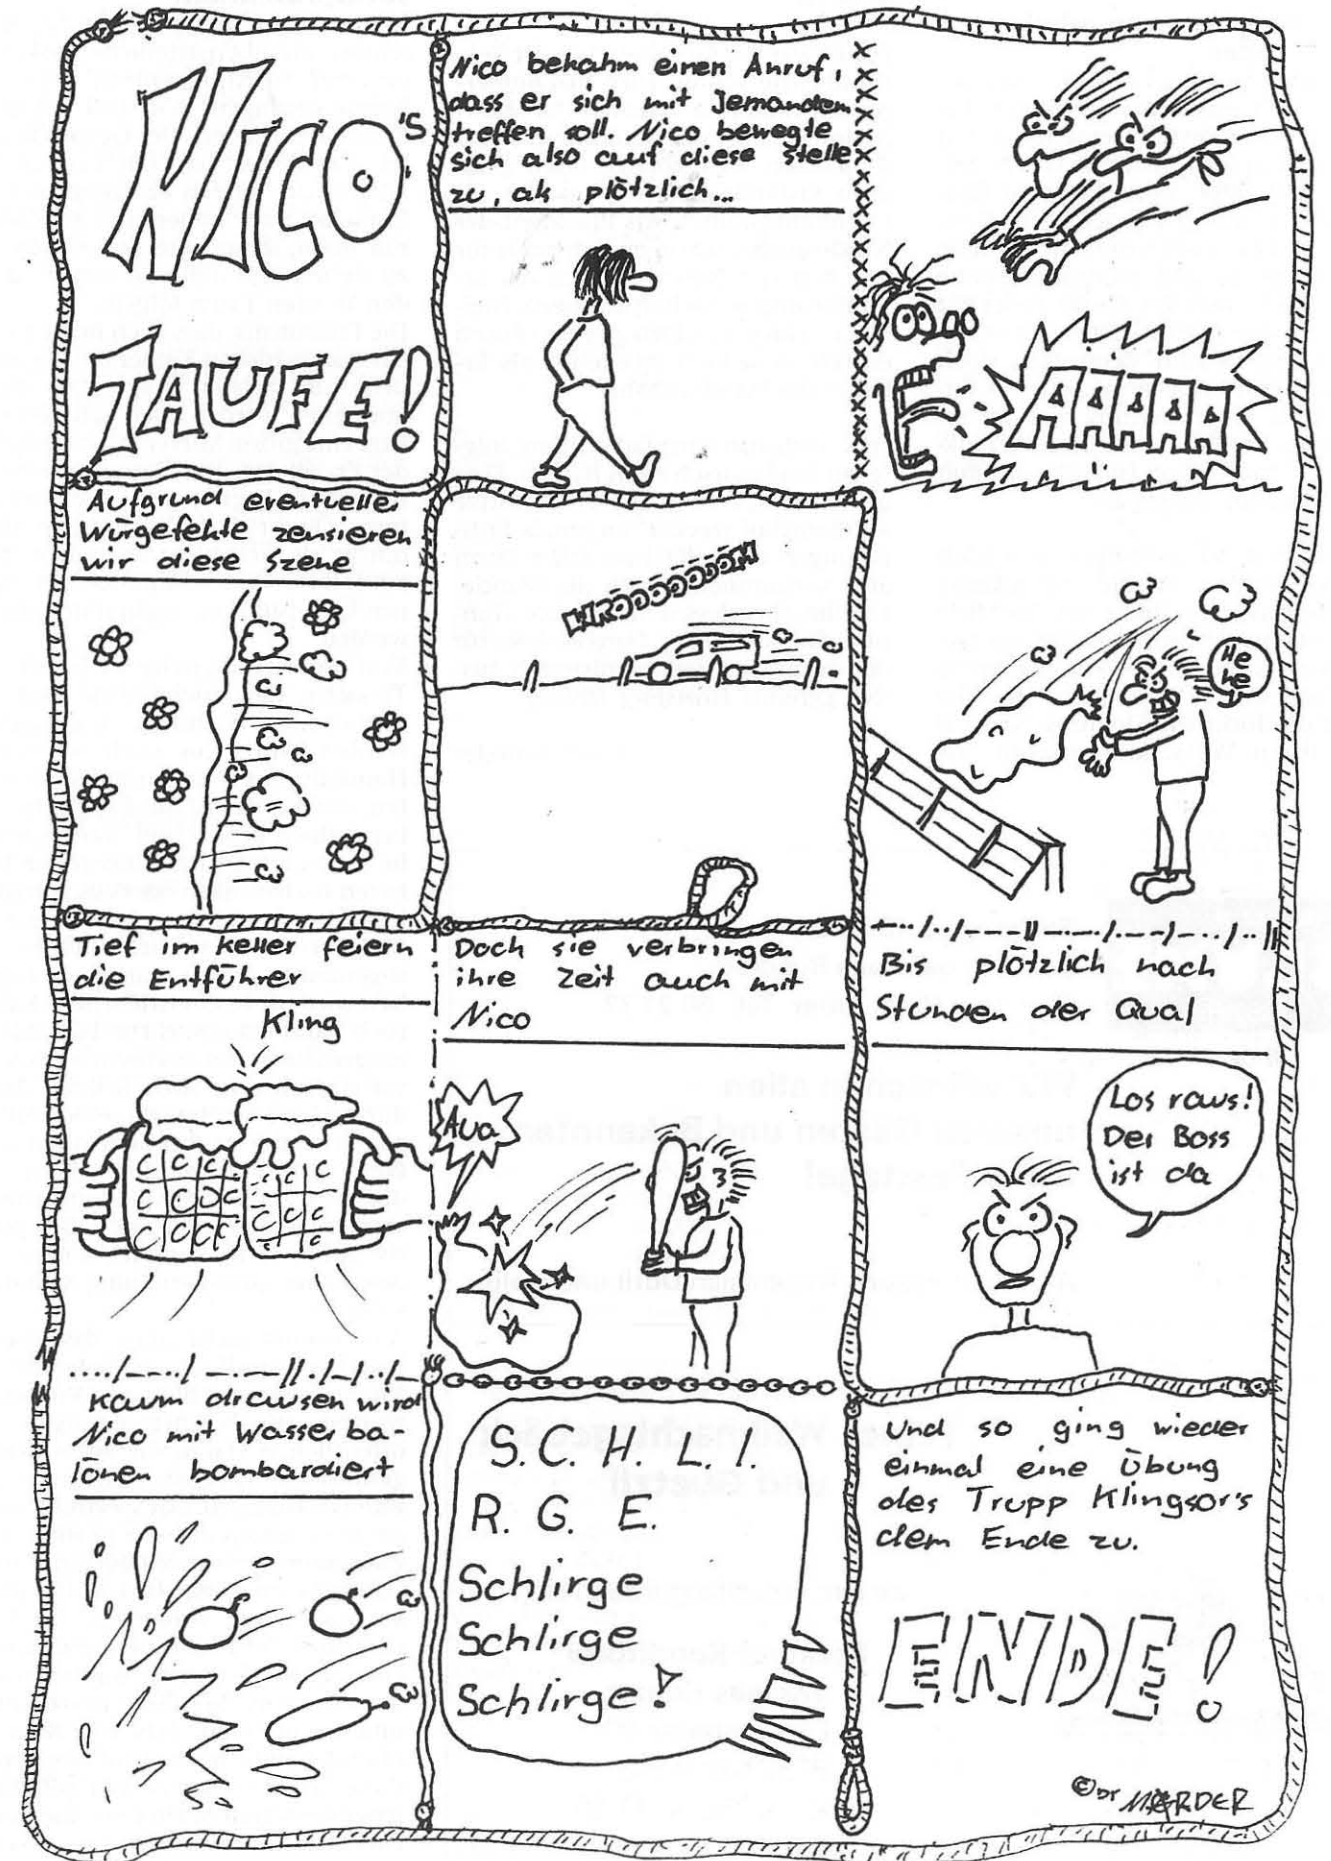 NICO'S
TAUFE!
Nico bekahm einen Anruf,
dass er sich mit Jemandem
treffen soll. Nico bewegte
sich also auf diese stelle
zu, als plötzlich...
AAAAA
Aufgrund eventueller
Würgefehte zensieren
wir diese Szene
He
he
Tief im keller feiern
die Entführer
Kling
Doch sie verbringen
ihre Zeit auch mit
Nico
AUA
Bis plötzlich nach
Stunden der Qual
Los raus!
Der Boss
ist da
Kaum draussen wird
Nico mit Wasserba-
lönen bombardiert
S.C.H.L.I.
R.G.E.
Schlirge
Schlirge
Schlirge!
Und so ging wieder
einmal eine Übung
des Trupp Klingsor's
dem Ende zu.
ENDE!
© Dr MÖRDER